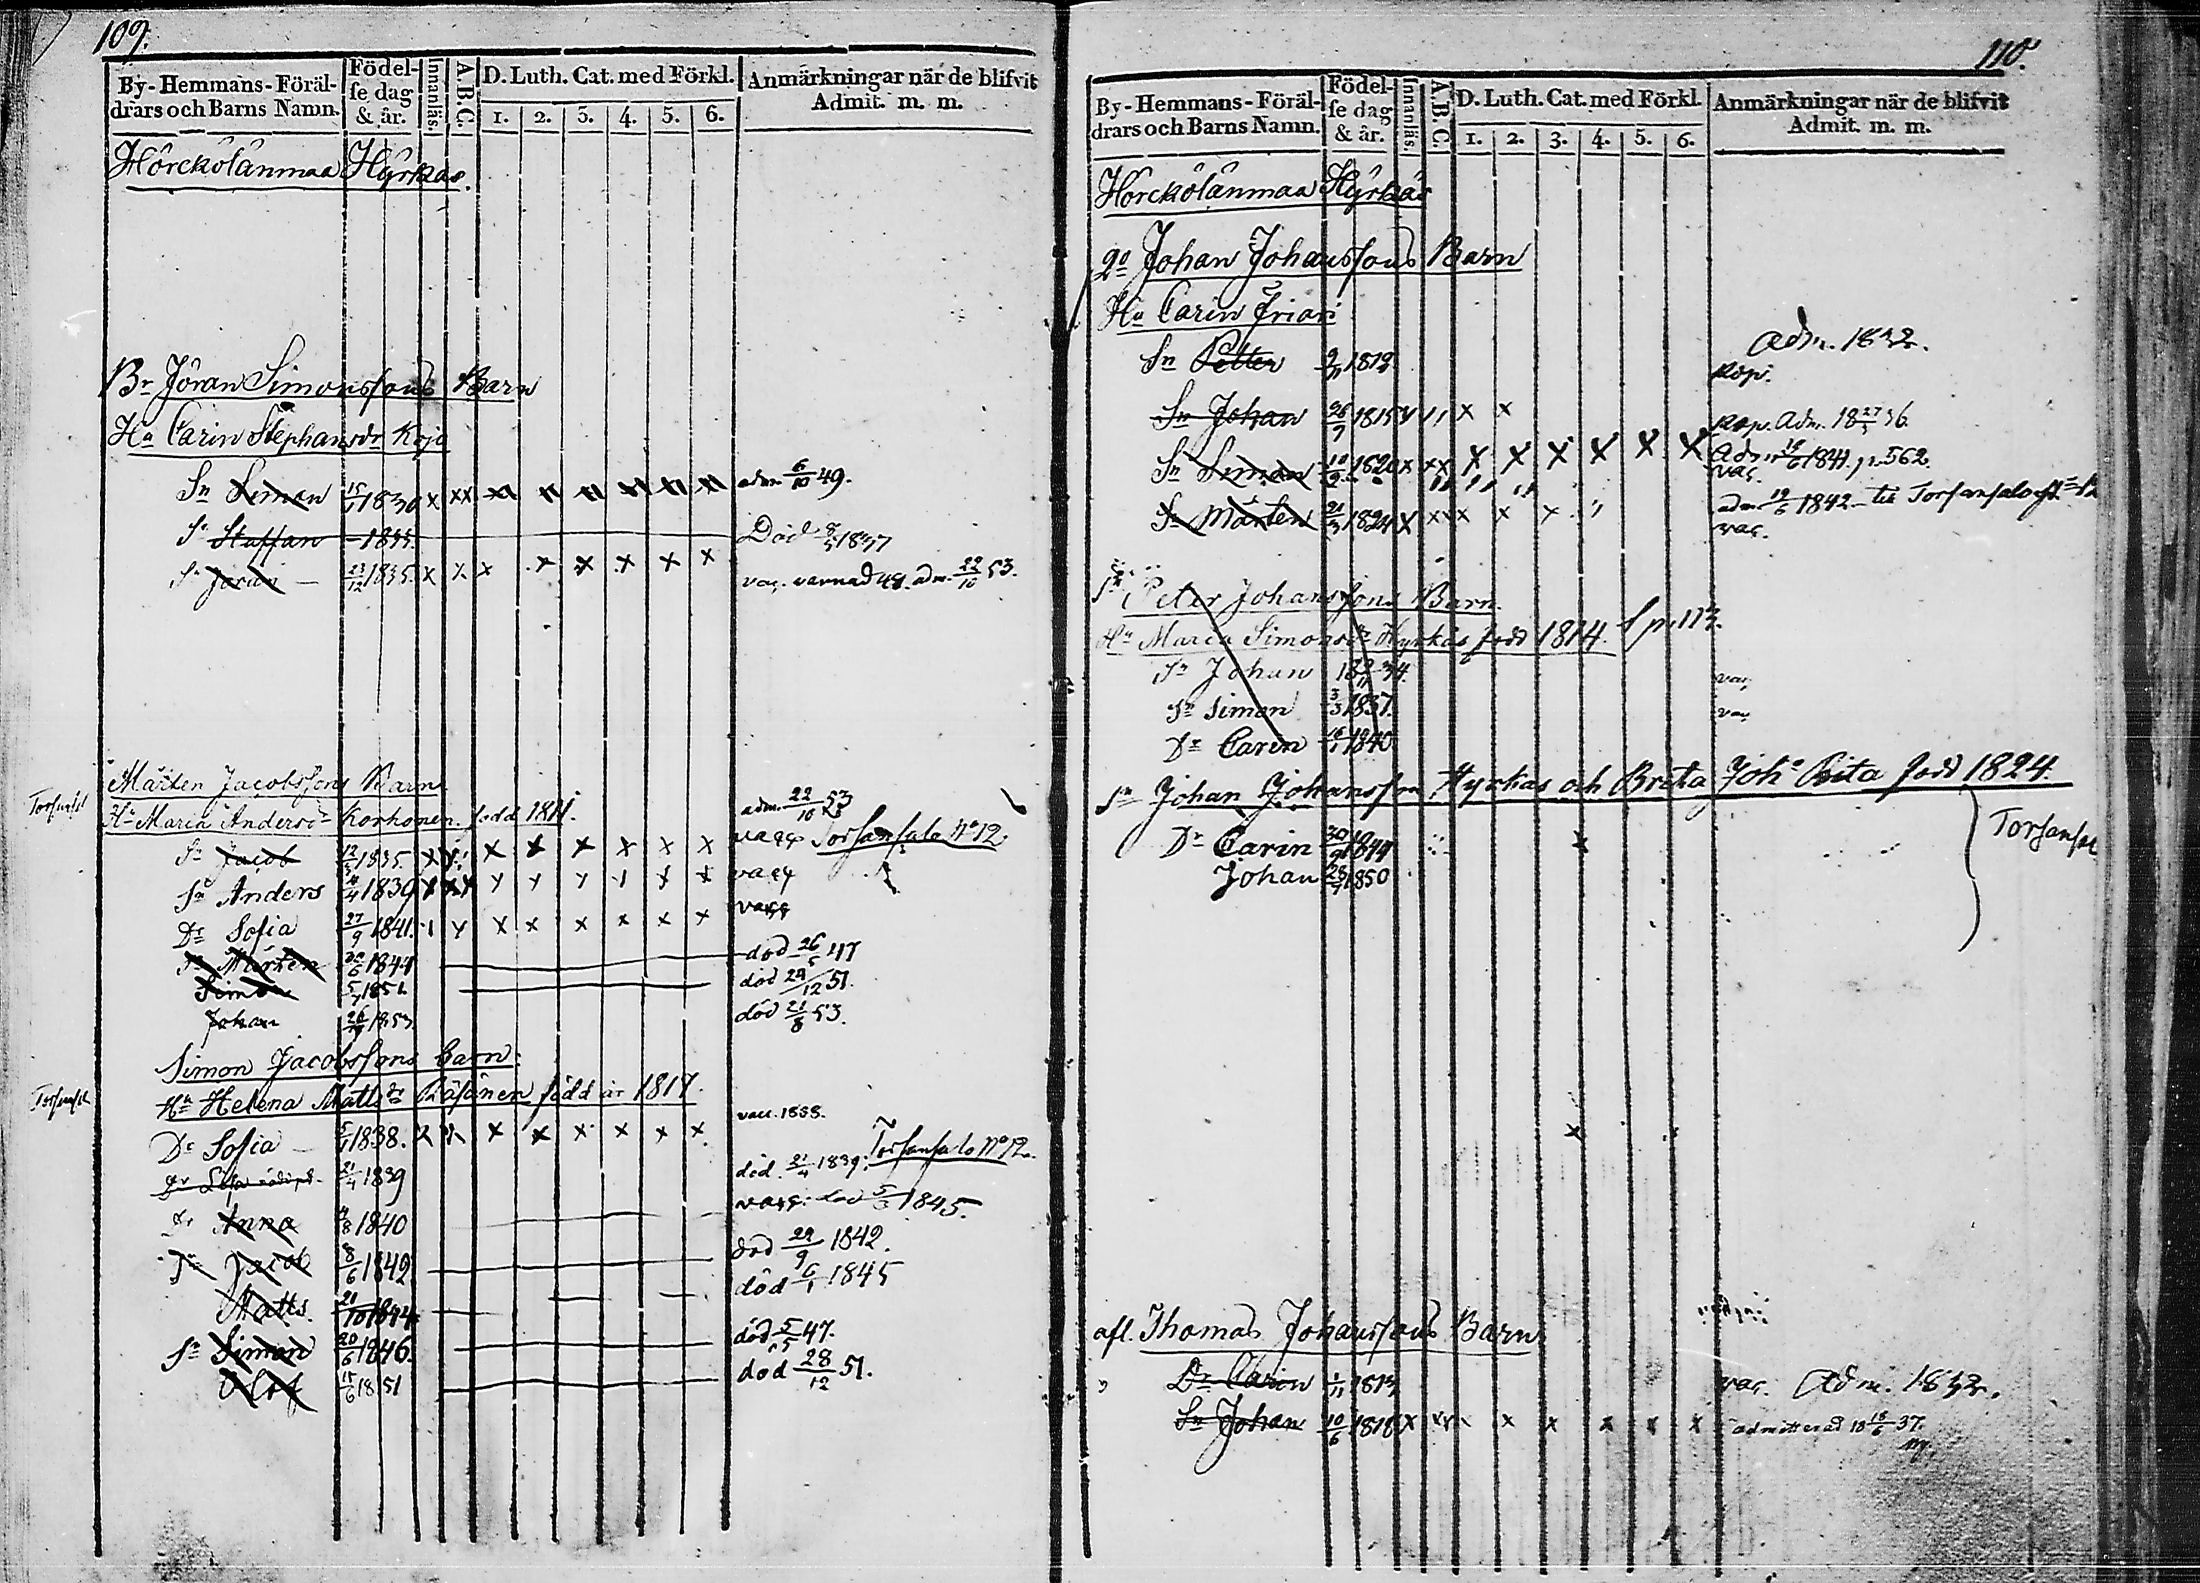 109.
By-Hemmans-Föräl-
drars och Barns Namn.
Födel-
se dag
& år.
Innanläs.
A.B.C.
D. Luth. Cat. med Förkl.
1. 2. 3. 4. 5. 6.
Anmärkningar när de blifvit
Admit. m. m.
Hörckölänmaa Hyrkäs.
Br Jöran Simonssons Barn
Hu Carin Stephansdr Koji
Sn Simon 15/1 1830 x xx adm. 6/10 49.
Sn Staffan 1833. Död 8/5 1837
Sn Jöran 23/12 1835. x x x x x x x x vac. varnad 48. adm. 22/10 53.
Mårten Jacobssons Barn
Hu Maria Andersdr Korhonen född 1811.
adm. 22/10 53
Sn Jacob 1835. x x x x x x x Torsansalo No 12.
Sn Anders 4/4 1839
Dr Sofia 27/9 1841.
Sn Mårten 1844 död 26/5 47
Simon 5/7 1851 död 29/12 51.
Johan 1853 död 21/8 53.
Simon Jacobssons barn
Hu Helena Mattsdr Räsänen född år 1817.
vacc. 1838.
Dr Sofia 5/1 1838. x x x x x x x x Torsansalo No 12.
Dr 21/4 1839 död. 21/4 1839.
Dr Anna 4/8 1840 död 5/3 1845.
Sn Jacob 8/6 1842 död 29/9 1842.
Matts. 21/10 1844 död 6/1 1845
Sn Simon 20/6 1846. död 5/5 47.
Olof 15/6 1851 död 28/12 51.
110.
By-Hemmans-Föräl-
drars och Barns Namn.
Födel-
se dag
& år.
Innanläs.
A.B.C.
D. Luth. Cat. med Förkl.
1. 2. 3. 4. 5. 6.
Anmärkningar när de blifvit
Admit. m. m.
Hörckölänmaa Hyrkäs
2o Johan Johanssons Barn
Hu Carin Irian
Adm. 1832.
Sn Petter 9/11 1812 kop.
Sn Johan 26/9 1815 x x kop. Adm. 18 27/5 36.
Sn Simon 10/9 1820 x xx x x x x x x Adm. 1841. p. 562.
vac.
Sn Mårten 21/3 1824 x xx x x x adm. 19/6 1842 till Torsansalo
vac.
Sn Peter Johanssons Barn.
Hu Maria Simonsdr Hyrkäs född 1814. p. 113.
Sn Johan 1834. vac
Sn Simon 3/3 1837. vac
Dr Carin 16/1 1840
Sn Johan Johansson Hyrkas och Brita född 1824.
Dr Carin 30/9 1844 Torsansal
Johan 1850
afl. Thomas Johanssons Barn
Dr Carin 1/11 1813 vac. Adm. 1832.
Sn Johan 10/6 1818 x x x x x x x admitterad 18 18/6 37.